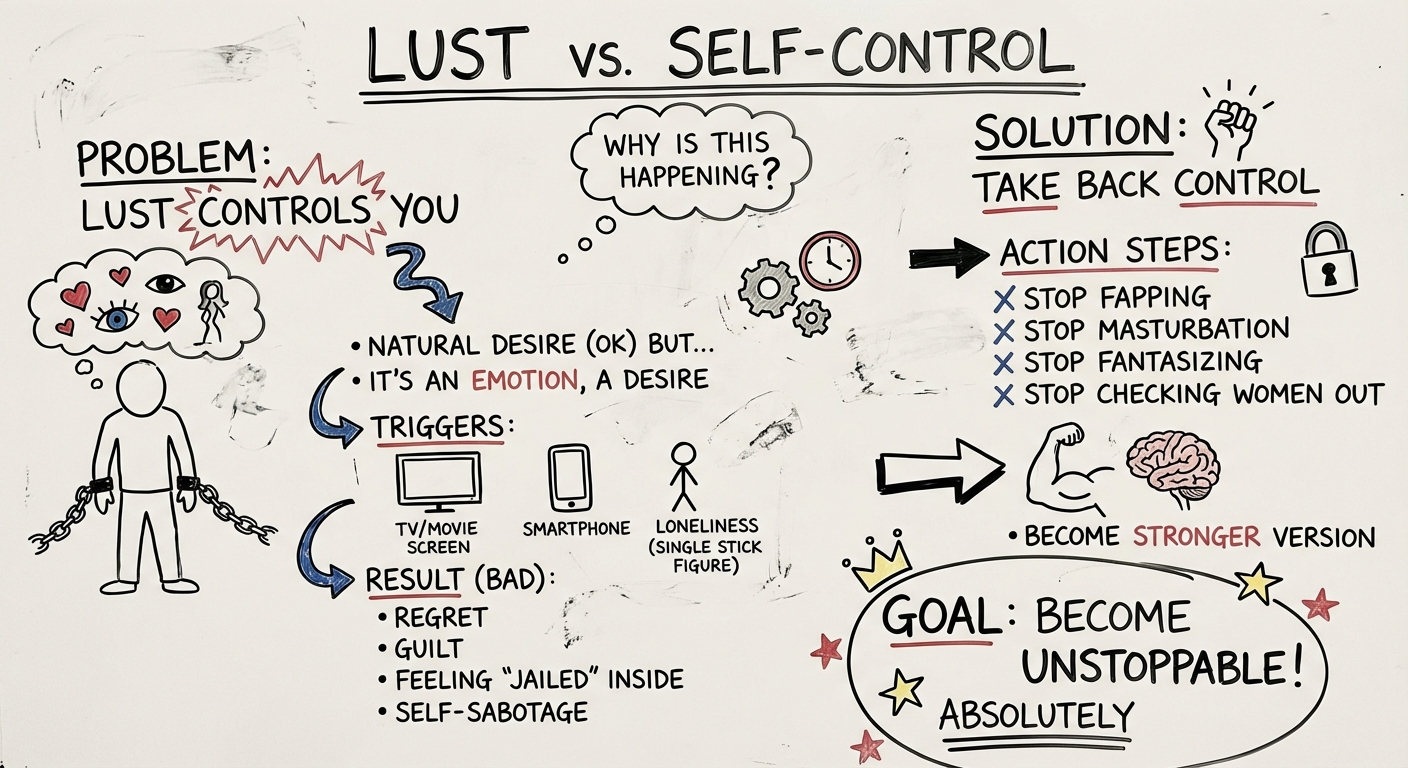 LUST VS. SELF-CONTROL
PROBLEM:
LUST CONTROLS YOU
WHY IS THIS
HAPPENING?
• NATURAL DESIRE (OK) BUT...
• IT'S AN EMOTION, A DESIRE
TRIGGERS:
TV/MOVIE
SCREEN
SMARTPHONE
LONELINESS
(SINGLE STICK
FIGURE)
RESULT (BAD):
• REGRET
• GUILT
• FEELING "JAILED" INSIDE
• SELF-SABOTAGE
SOLUTION:
TAKE BACK CONTROL
ACTION STEPS:
X STOP FAPPING
X STOP MASTURBATION
X STOP FANTASIZING
X STOP CHECKING WOMEN OUT
• BECOME STRONGER VERSION
GOAL: BECOME
UNSTOPPABLE!
ABSOLUTELY